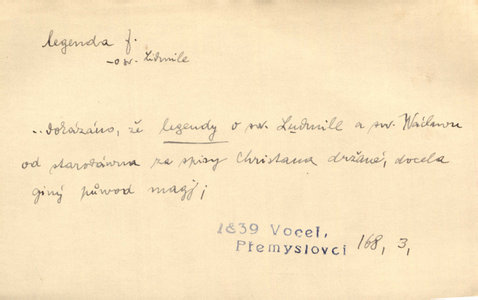 legenda f.
– o sv. Lidmile
..dokázáno, že legendy o sv. Ludmile a sw. Wáclawu
od starodáwna za spisy Christana držané, docela
giný půwod magj;
1839 Vocel,
Přemyslovci 168, 3,